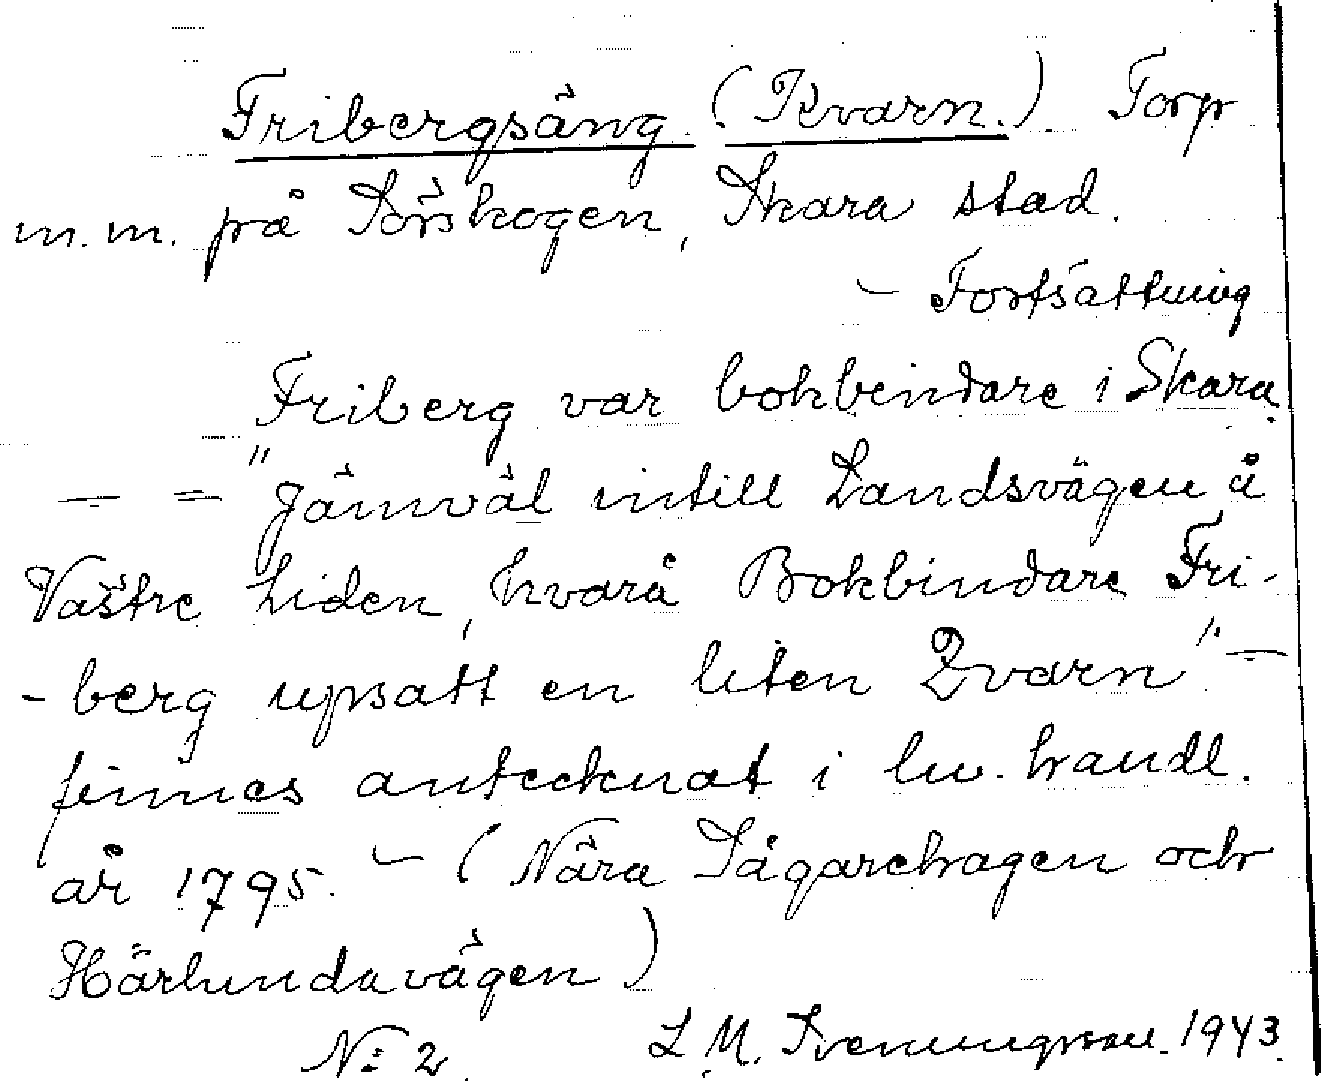 Fribergsäng (Kvarn.) Torp
m.m. på Sörskogen, Skara stad.
- Fortsättning
Friberg var bokbindare i Skara
- = "Jämväl intill Landsvägen å
Västre Liden, hvarå Bokbindare Fri-
-berg upsatt en liten Qvarn". -
finnes antecknat i lm. handl.
år 1795. - (Nära Sågarehagen och
Härlundavägen)
N: 2 L. M. Svenungsson. 1943.